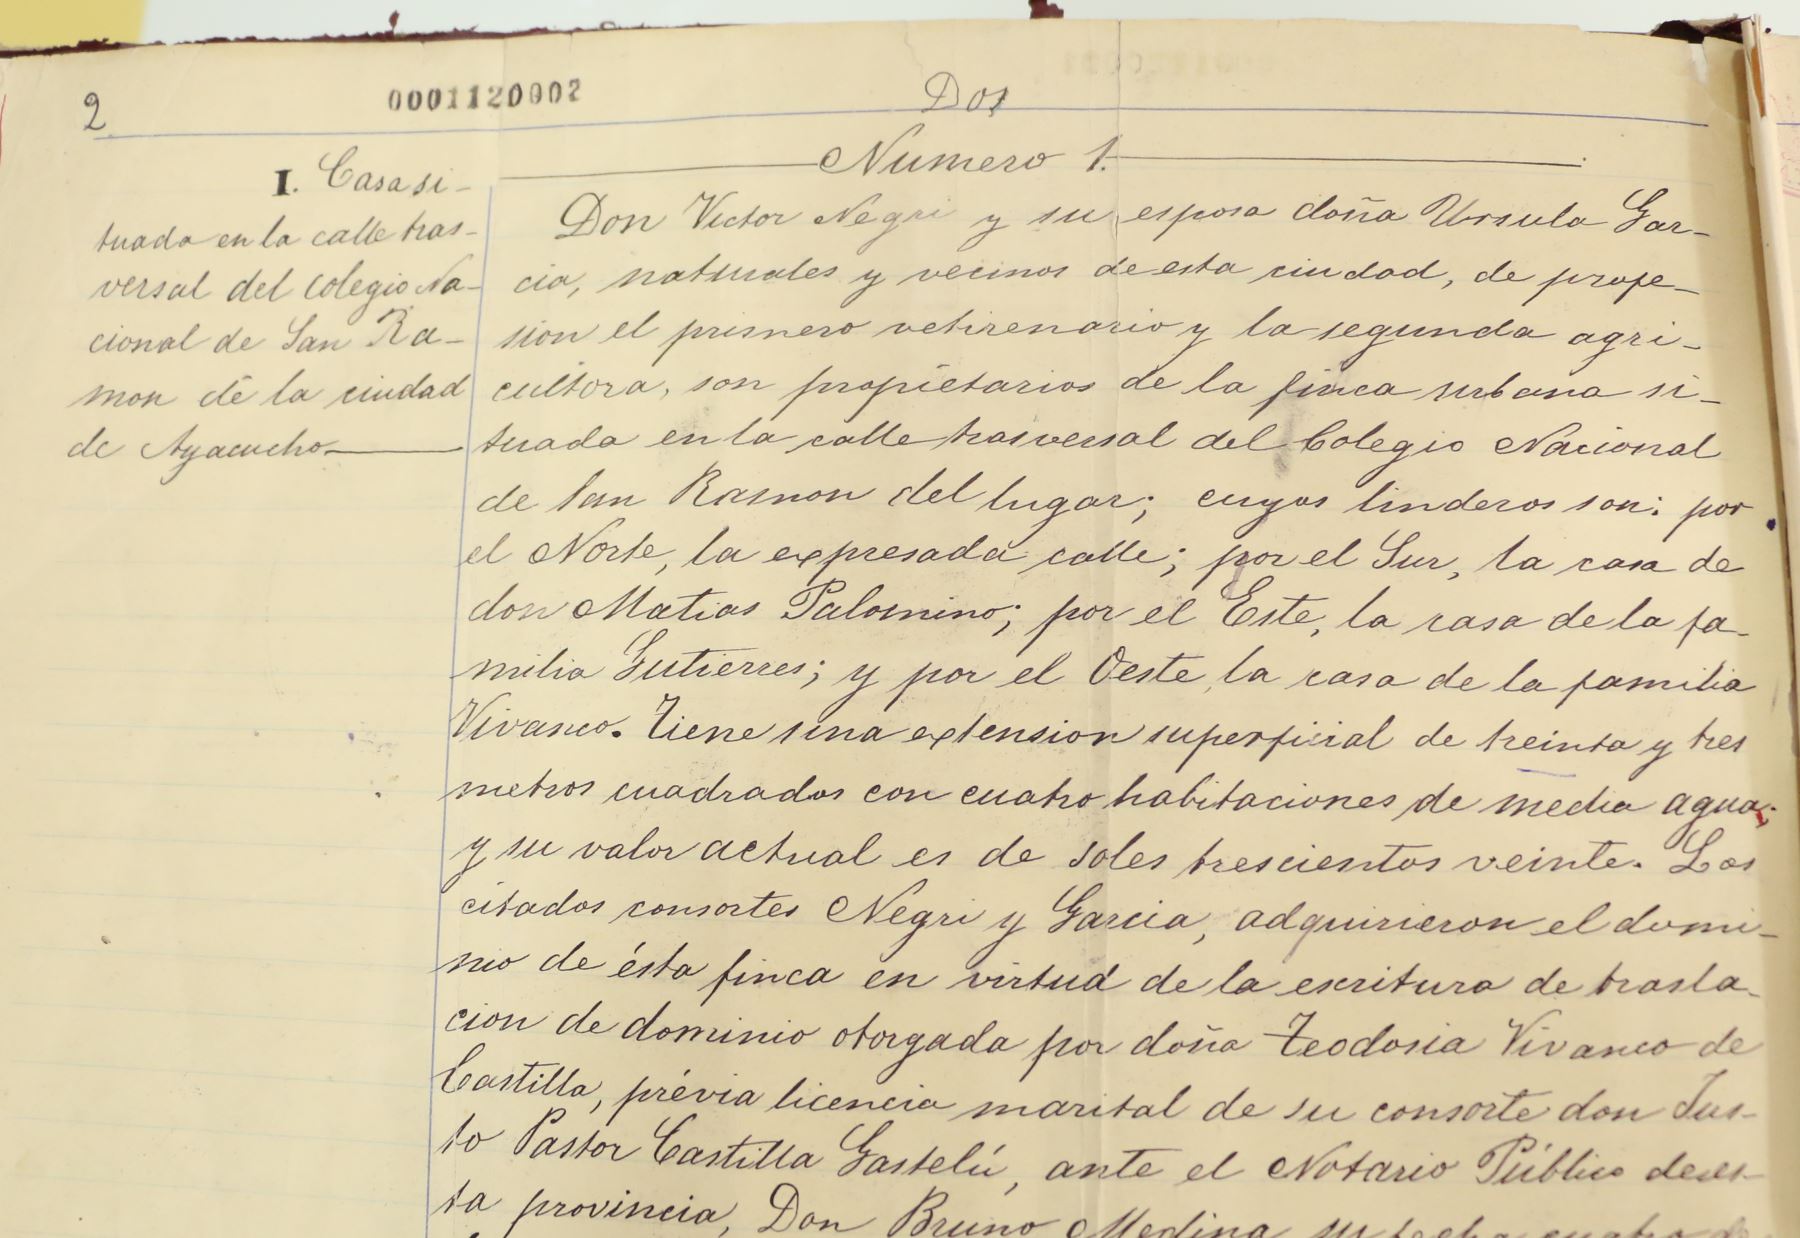 2
0001120002
Dos
Numero 1.
I. Casa si-
tuada en la calle tras-
versal del colegio Na-
cional de San Ra-
mon de la ciudad
de Ayacucho
Don Victor Negri y su esposa doña Ursula Gar-
cia, naturales y vecinos de esta ciudad, de profe-
sion el primero vetirenario y la segunda agri-
cultora, son propietarios de la finca urbana si-
tuada en la calle trasversal del Colegio Nacional
de San Ramon del lugar; cuyos linderos son: por
el Norte, la expresada calle; por el Sur, la casa de
don Matias Palomino; por el Este, la casa de la fa-
milia Gutierres; y por el Oeste, la casa de la familia
Vivanco. Tiene una extension superficial de treinta y tres
metros cuadrados con cuatro habitaciones de media agua;
y su valor actual es de soles trescientos veinte. Los
citados consortes Negri y Garcia, adquirieron el domi-
nio de ésta finca en virtud de la escritura de trasla-
cion de dominio otorgada por doña Teodosia Vivanco de
Castilla, prévia licencia marital de su consorte don Jus-
to Pastor Castilla Gastelú, ante el Notario Público de es-
ta provincia, Don Bruno Medina, su fecha cuatro de